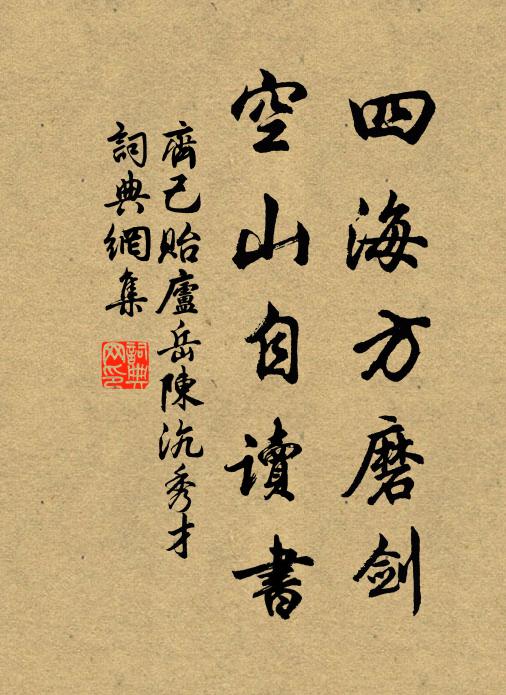 四海方磨剑
空山自讀書
齊己貽廬岳陳沆秀才
詞典網集
詞典網印